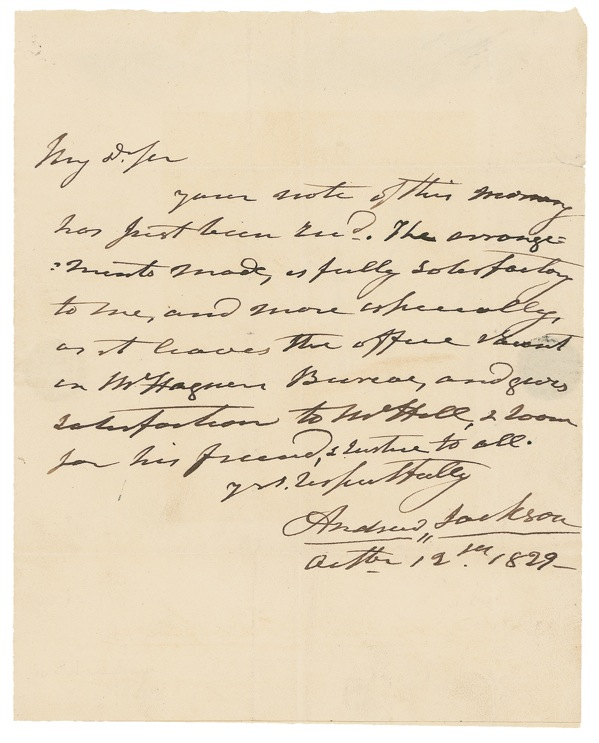 My Dr Sir
your note of this morning
has just been recd. The arrange=
=ments made, is fully satisfactory
to me, and more especially,
as it leaves the office vacant
in Mr Hagners Bureau, and gives
satisfaction to Mr Hill, & room
for his friend, & justice to all.
yrs. respectfully
Andrew Jackson
Octbr 12th. 1829—